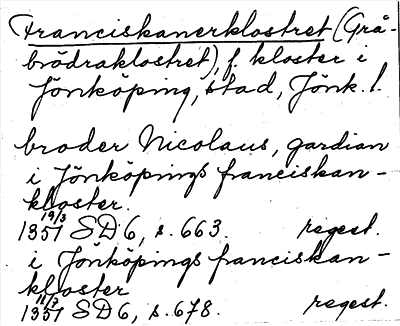 Franciskanerklostret (Grå-
brödraklostret), f. kloster i
Jönköping, stad, Jönk. l.
broder Nicolaus, gardian
i Jönköpings franciskan-
kloster.
19/3
1351 SD 6, s. 663. regest.
i Jönköpings franciskan-
kloster
11/7
1351 SD 6, s. 678. regest.